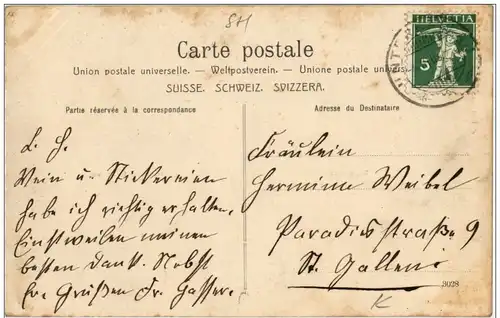 SH
Carte postale
Union postale universelle. — Weltpostverein. — Unione postale univers
SUISSE. SCHWEIZ. SVIZZERA.
HELVETIA
5
UNT
Partie réservée à la correspondance
Adresse du Destinataire
L. H.
Wein u. Stickereien
habe ich richtig erhalten.
Einstweilen meinen
besten Dank. Nebst
Grüßen Fr. Gasser.
Fräulein
Hermine Weibel
Paradisstraße 9
St. Gallen
3028
K